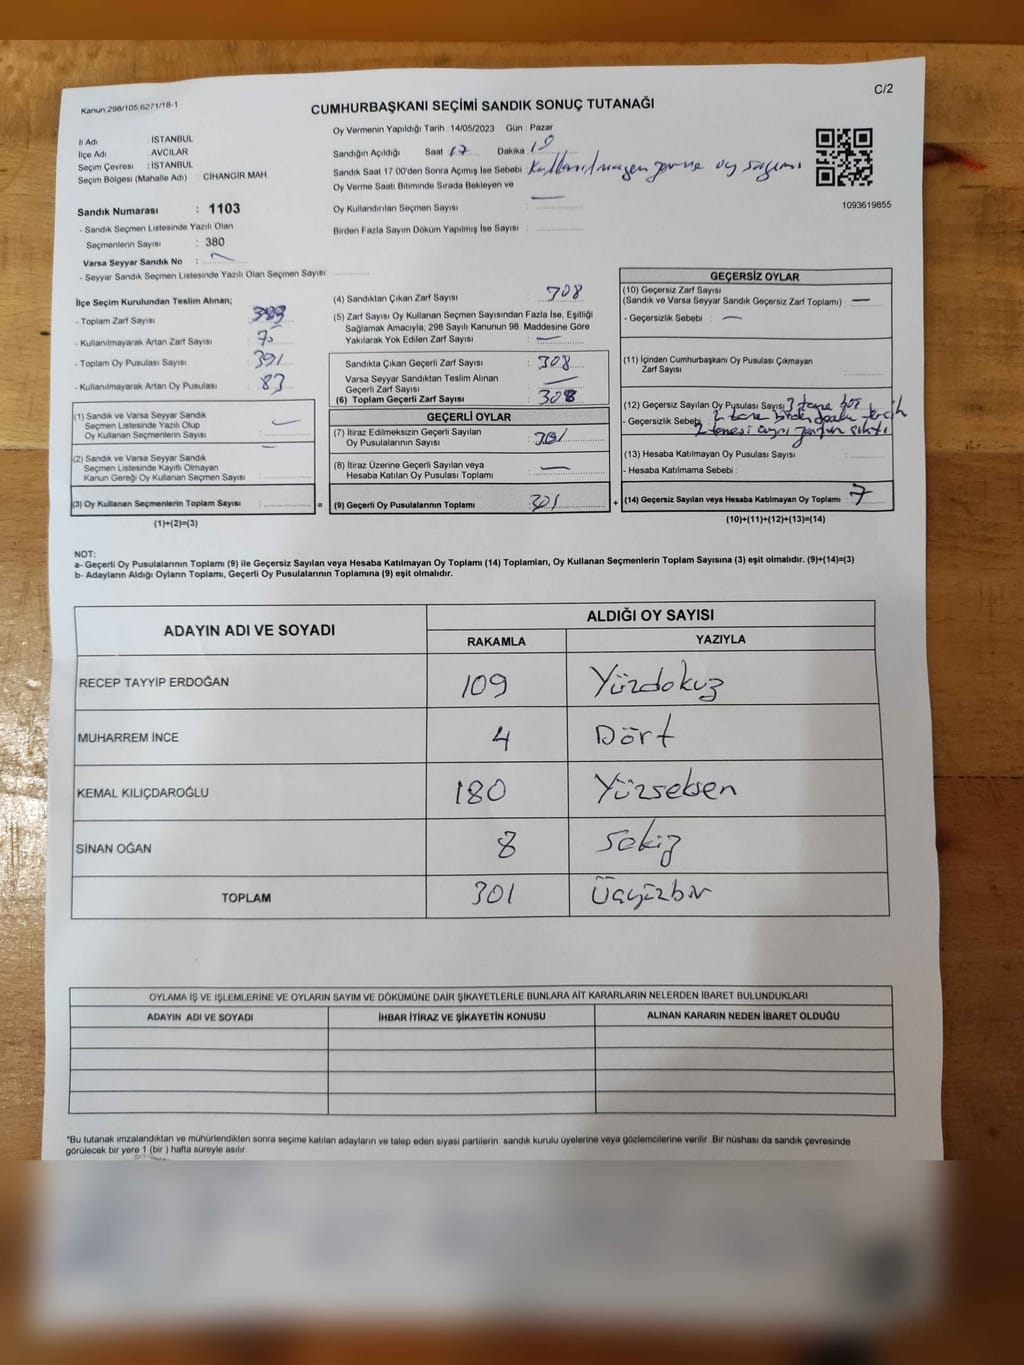 Kanun:298/105;6271/18-1
C/2
CUMHURBAŞKANI SEÇİMİ SANDIK SONUÇ TUTANAĞI
İl Adı : İSTANBUL
İlçe Adı : AVCILAR
Seçim Çevresi : İSTANBUL
Seçim Bölgesi (Mahalle Adı) : CİHANGİR MAH.
Sandık Numarası : 1103
- Sandık Seçmen Listesinde Yazılı Olan
Seçmenlerin Sayısı : 380
Varsa Seyyar Sandık No :
- Seyyar Sandık Seçmen Listesinde Yazılı Olan Seçmen Sayısı:
Oy Vermenin Yapıldığı Tarih : 14/05/2023 Gün : Pazar
Sandığın Açıldığı Saat 17 Dakika : 19
Sandık Saat 17.00'den Sonra Açımış İse Sebebi Kullanılmayan zarf ve oy sayımı
Oy Verme Saati Bitiminde Sırada Bekleyen ve
Oy Kullandırılan Seçmen Sayısı :
Birden Fazla Sayım Döküm Yapılmış İse Sayısı :
1093619855
İlçe Seçim Kurulundan Teslim Alınan;
- Toplam Zarf Sayısı : 383
- Kullanılmayarak Artan Zarf Sayısı : 75
- Toplam Oy Pusulası Sayısı : 391
- Kullanılmayarak Artan Oy Pusulası : 83
(1) Sandık ve Varsa Seyyar Sandık
Seçmen Listesinde Yazılı Olup
Oy Kullanan Seçmenlerin Sayısı :
(2) Sandık ve Varsa Seyyar Sandık
Seçmen Listesinde Kayıtlı Olmayan
Kanun Gereği Oy Kullanan Seçmen Sayısı :
(3) Oy Kullanan Seçmenlerin Toplam Sayısı : =
(1)+(2)=(3)
(4) Sandıktan Çıkan Zarf Sayısı : 308
(5) Zarf Sayısı Oy Kullanan Seçmen Sayısından Fazla İse, Eşitliği
Sağlamak Amacıyla, 298 Sayılı Kanunun 98. Maddesine Göre
Yakılarak Yok Edilen Zarf Sayısı :
Sandıkta Çıkan Geçerli Zarf Sayısı : 308
Varsa Seyyar Sandıktan Teslim Alınan
Geçerli Zarf Sayısı :
(6) Toplam Geçerli Zarf Sayısı : 308
GEÇERLİ OYLAR
(7) İtiraz Edilmeksizin Geçerli Sayılan
Oy Pusulalarının Sayısı : 301
(8) İtiraz Üzerine Geçerli Sayılan veya
Hesaba Katılan Oy Pusulası Toplamı :
(9) Geçerli Oy Pusulalarının Toplamı : 301 +
GEÇERSİZ OYLAR
(10) Geçersiz Zarf Sayısı
(Sandık ve Varsa Seyyar Sandık Geçersiz Zarf Toplamı) :
- Geçersizlik Sebebi :
(11) İçinden Cumhurbaşkanı Oy Pusulası Çıkmayan
Zarf Sayısı :
(12) Geçersiz Sayılan Oy Pusulası Sayısı : 3 tane boş
- Geçersizlik Sebebi : 2 tane birden fazla tercih
2 tanesi aynı zarftan çıktı
(13) Hesaba Katılmayan Oy Pusulası Sayısı :
- Hesaba Katılmama Sebebi :
(14) Geçersiz Sayılan veya Hesaba Katılmayan Oy Toplamı : 7
(10)+(11)+(12)+(13)=(14)
NOT:
a- Geçerli Oy Pusulalarının Toplamı (9) ile Geçersiz Sayılan veya Hesaba Katılmayan Oy Toplamı (14) Toplamları, Oy Kullanan Seçmenlerin Toplam Sayısına (3) eşit olmalıdır. (9)+(14)=(3)
b- Adayların Aldığı Oyların Toplamı, Geçerli Oy Pusulalarının Toplamına (9) eşit olmalıdır.
ADAYIN ADI VE SOYADI
ALDIĞI OY SAYISI
RAKAMLA YAZIYLA
RECEP TAYYİP ERDOĞAN 109 Yüzdokuz
MUHARREM İNCE 4 Dört
KEMAL KILIÇDAROĞLU 180 Yüzseksen
SİNAN OĞAN 8 Sekiz
TOPLAM 301 Üçyüzbir
OYLAMA İŞ VE İŞLEMLERİNE VE OYLARIN SAYIM VE DÖKÜMÜNE DAİR ŞİKAYETLERLE BUNLARA AİT KARARLARIN NELERDEN İBARET BULUNDUKLARI
ADAYIN ADI VE SOYADI İHBAR İTİRAZ VE ŞİKAYETİN KONUSU ALINAN KARARIN NEDEN İBARET OLDUĞU
*Bu tutanak imzalandıktan ve mühürlendikten sonra seçime katılan adayların ve talep eden siyasi partilerin sandık kurulu üyelerine veya gözlemcilerine verilir .Bir nüshası da sandık çevresinde
görülecek bir yere 1 (bir ) hafta süreyle asılır.